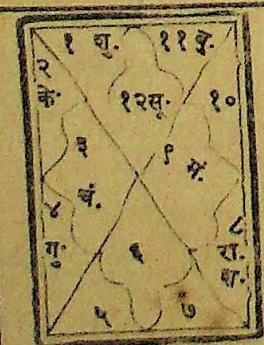 १ शु. ११ बु.
२ के. १२सू. १०
३ चं. ९ मं.
४ गु. ६ ८ रा. श.
५ ७